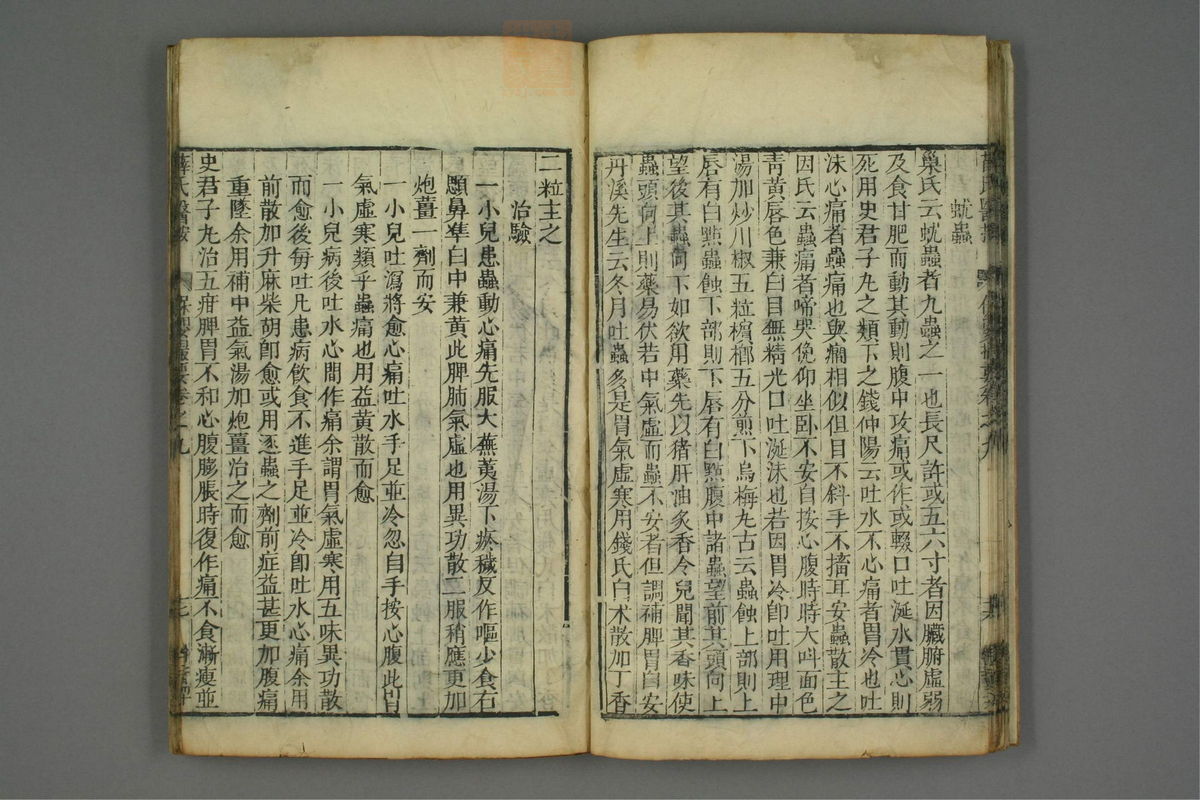 蚘蟲
巢氏云蚘蟲者九蟲之一也長尺許或五六寸者因臟腑虛弱
及食甘肥而動其動則腹中攻痛或作或輟口吐涎水貫心則
死用史君子丸之類下之錢仲陽云吐水不心痛者胃冷也吐
沫心痛者蟲痛也與癎相似但目不斜手不搐耳安蟲散主之
田氏云蟲痛者啼哭俛仰坐卧不安自按心腹時時大叫面色
青黃唇色兼白目無精光口吐涎沫也若因胃冷卽吐用理中
湯加炒川椒五粒檳榔五分煎下烏梅丸古云蟲蝕上部則上
唇有白㸃蟲蝕下部則下唇有白㸃腹中諸蟲望前其頭向上
望後其蟲向下如欲用藥先以猪肝油炙香令兒聞其香味使
蟲頭向上則藥易伏若中氣虛而蟲不安者但調補脾胃自安
丹溪先生云冬月吐蟲多是胃氣虛寒用錢氏白术散加丁香
二粒主之
治驗
一小兒患蟲動心痛先服大蕪荑湯下瘀穢反作嘔少食右
顋鼻準白中兼黃此脾肺氣虛也用異功散二服稍應更加
炮薑一劑而安
一小兒吐瀉將愈心痛吐水手足並冷忽自手按心腹此
氣虛寒類乎蟲痛也用益黃散而愈
一小兒病後吐水心間作痛余謂胃氣虛寒用五味異功散
而愈後每吐凡患病飲食不進手足並冷卽吐水心痛余用
前散加升麻柴胡卽愈或用逐蟲之劑前症益甚更加腹痛
重墜余用補中益氣湯加炮薑治之而愈
史君子丸治五疳脾胃不和心腹膨脹時復作痛不食漸瘦並
薛氏醫按 保嬰撮要卷之九